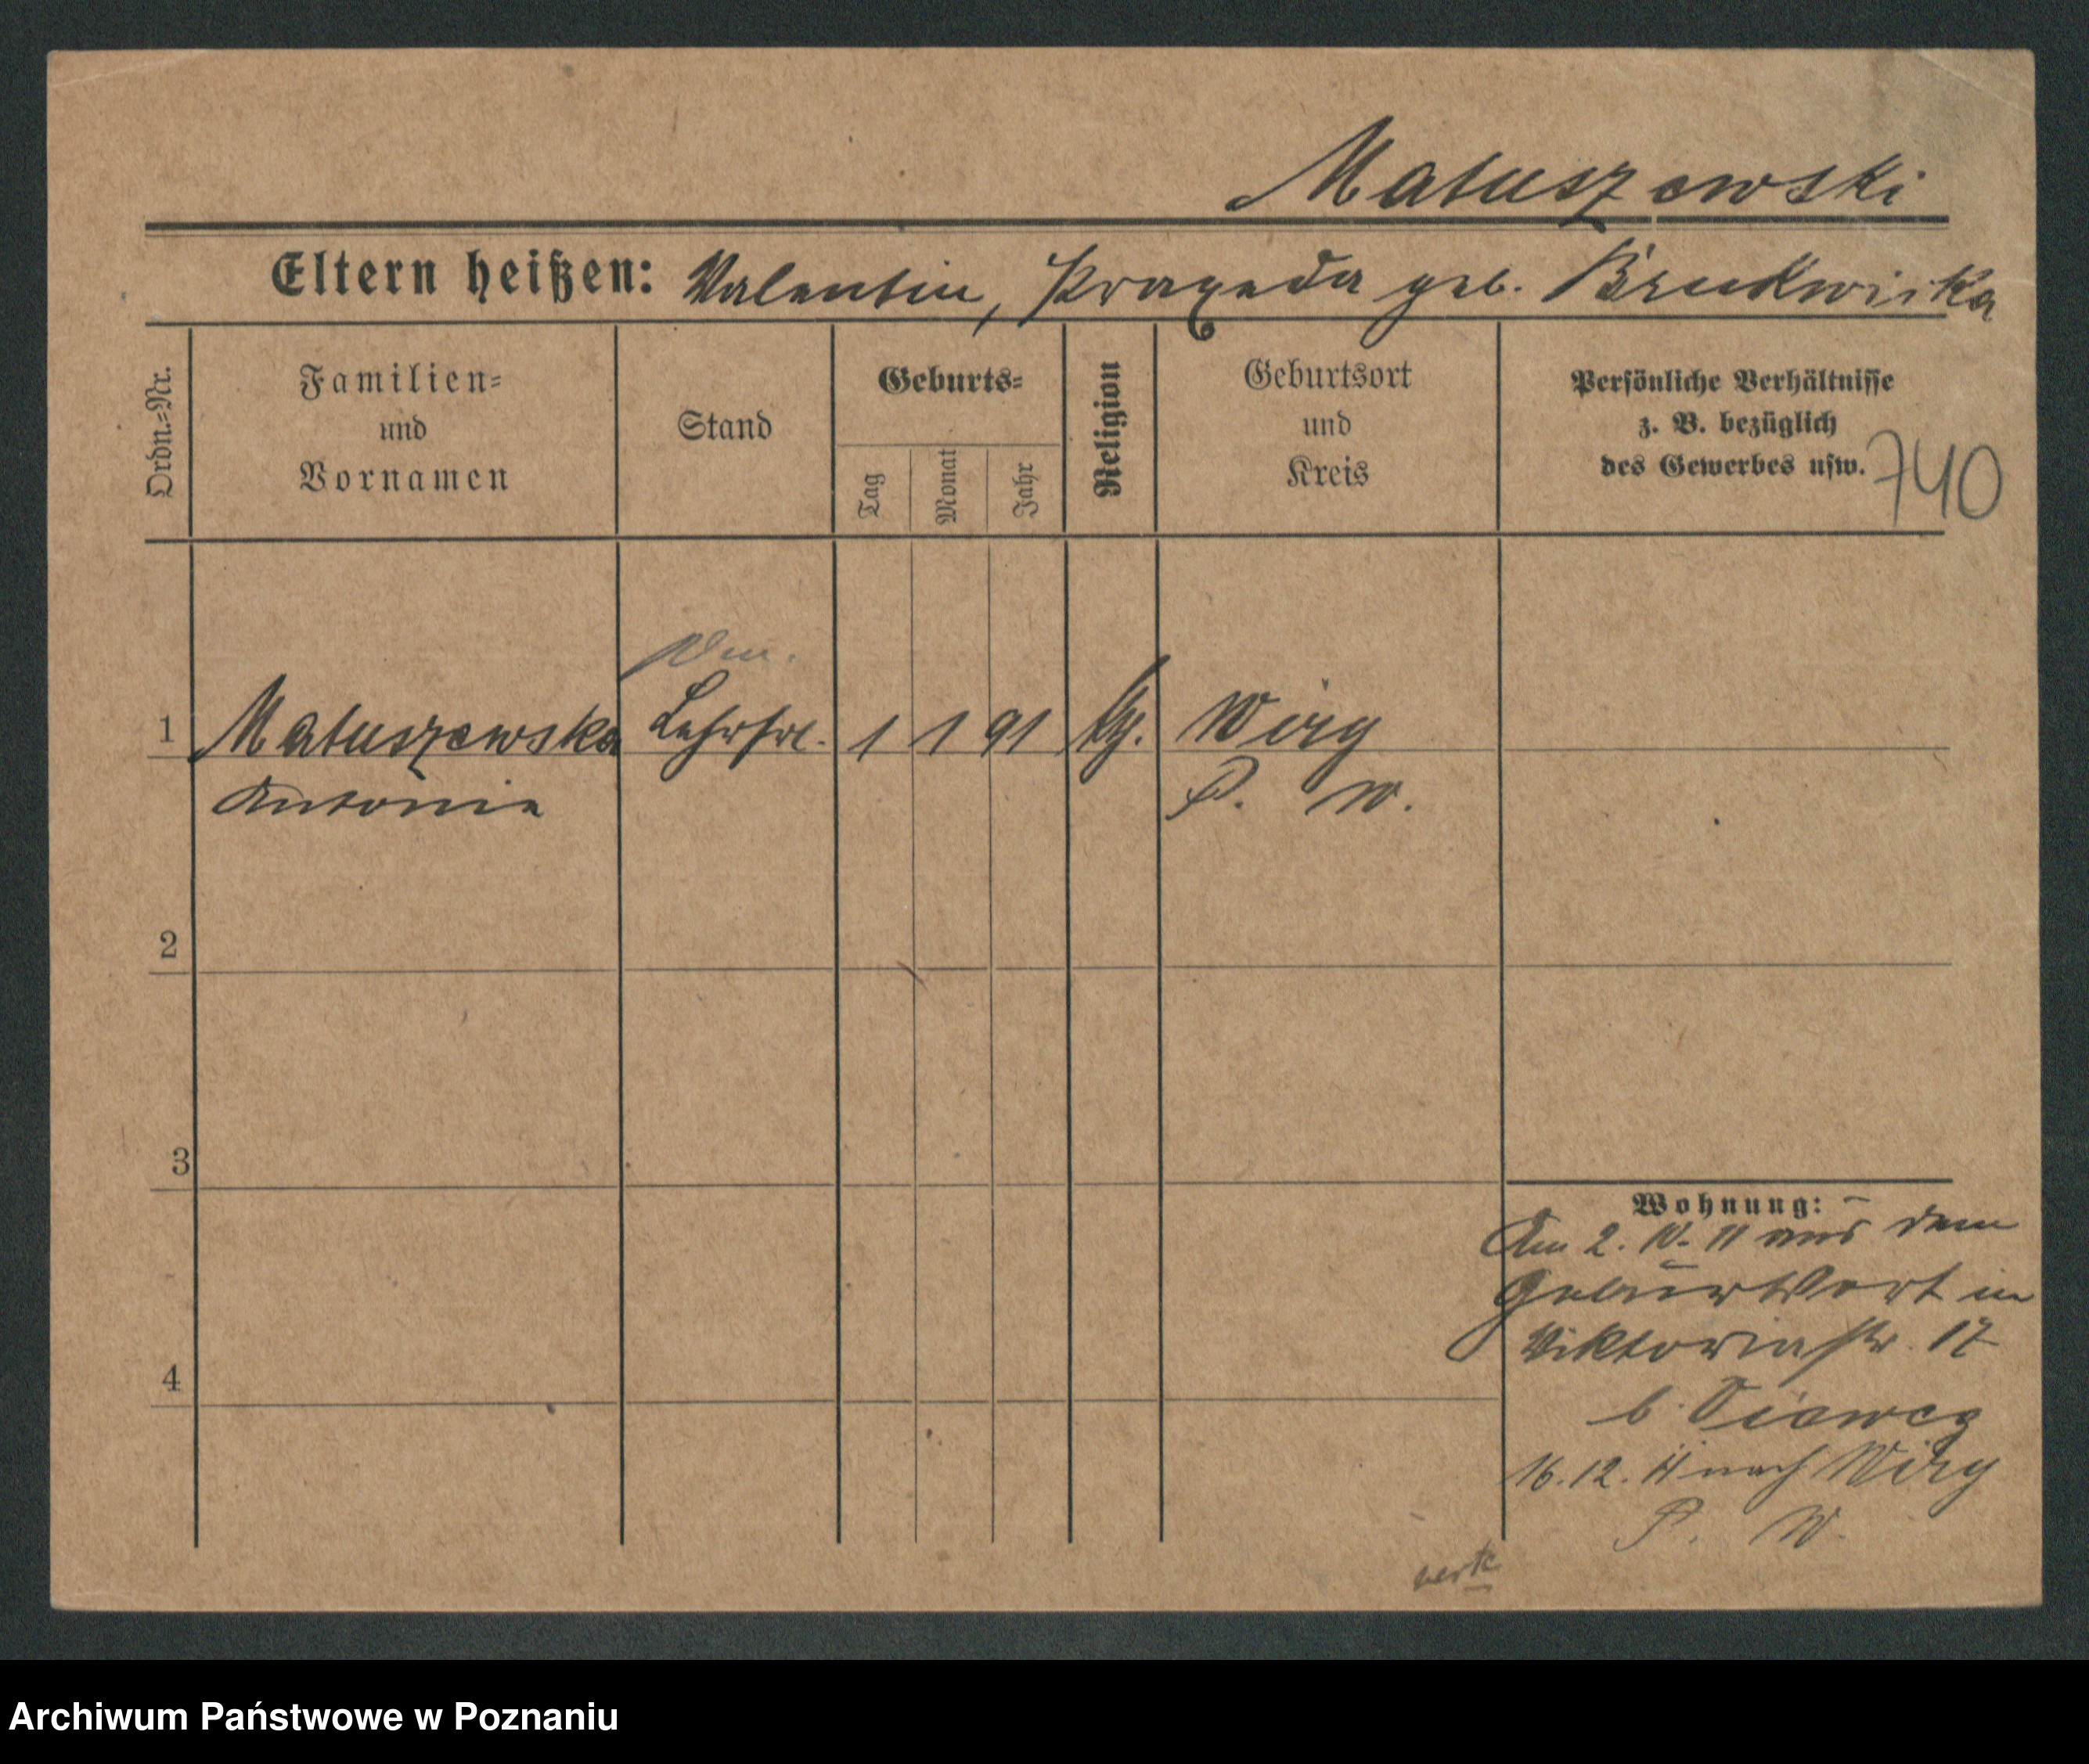 Matuszewski
Eltern heißen: Valentin, Praxeda geb. Brudwicka
Ordn.=Nr.
Familien=
und
Vornamen
Stand
Geburts=
Tag
Monat
Jahr
Religion
Geburtsort
und
Kreis
Persönliche Verhältnisse
z. B. bezüglich
des Gewerbes usw.
740
1 Matuszewska Lehrfrl. 1 1 91 Wiry
Antonia P. W.
2
3
4
Wohnung:
Am 2. 10. 11 aus dem
Geburtsort in
Viktoriastr. 17
b.
16.12.11 nach Wiry
P. W.
Archiwum Państwowe w Poznaniu